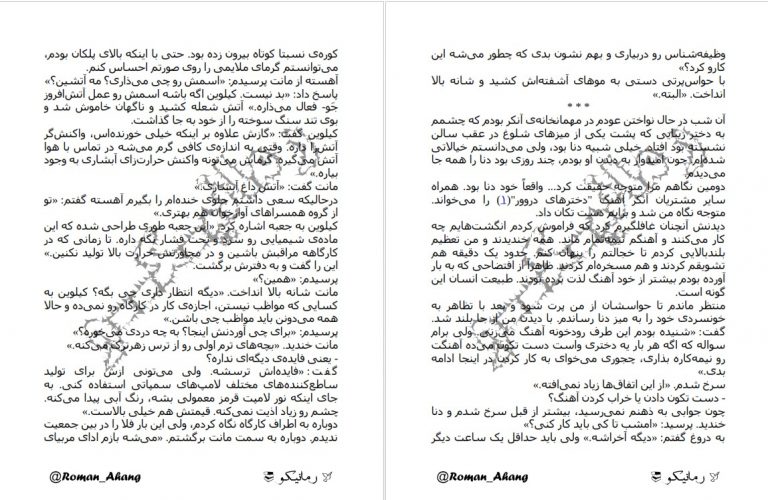 وظیفه‌شناس رو دربیاری و بهم نشون بدی که چطور می‌شه این
کارو کرد؟»
با حواس‌پرتی دستی به موهای آشفته‌اش کشید و شانه بالا
انداخت. «البته.»
* * *
آن شب در حال نواختن عودم در مهمانخانه‌ی آنکر بودم که چشمم
به دختر زیبایی که پشت یکی از میزهای شلوغ در عقب سالن
نشسته بود افتاد. خیلی شبیه دنا بود، ولی می‌دانستم خیالاتی
شده‌ام. چون امیدوار به دیدن او بودم، چند روزی بود دنا را همه جا
می‌دیدم.
دومین نگاهم مرا متوجه حقیقت کرد... واقعاً خود دنا بود. همراه
سایر مشتریان آنکر آهنگ "دخترهای دروور"(۱) را می‌خواند.
متوجه نگاه من شد و برایم دست تکان داد.
دیدنش آنچنان غافلگیرم کرد که فراموش کردم انگشت‌هایم چه
کار می‌کنند و آهنگم نیمه‌تمام ماند. همه خندیدند و من تعظیم
بلندبالایی کردم تا خجالتم را پنهان کنم. حدود یک دقیقه هم
تشویقم کردند و هم مسخره‌ام کردند. ظاهراً از افتضاحی که به بار
آورده بودم بیشتر از خود آهنگ لذت برده بودند. طبیعت انسان این
گونه است.
منتظر ماندم تا حواسشان از من پرت شود و بعد با تظاهر به
خونسردی خود را به میز دنا رساندم. با دیدن من از جا بلند شد.
گفت: «شنیده بودم این طرف رودخونه آهنگ می‌زنی. ولی برام
سواله که اگه هر بار یه دختری واست دست تکون می‌ده آهنگت
رو نیمه‌کاره بذاری، چجوری می‌خوای به کار کردن در اینجا ادامه
بدی.»
سرخ شدم. «از این اتفاق‌ها زیاد نمی‌افته.»
- دست تکون دادن یا خراب کردن آهنگ؟
چون جوابی به ذهنم نمی‌رسید، بیشتر از قبل سرخ شدم و دنا
خندید. پرسید: «امشب تا کی باید کار کنی؟»
به دروغ گفتم: «دیگه آخراشه.» ولی باید حداقل یک ساعت دیگر
@Roman_Ahang
رمانیکو
کوره‌ی نسبتا کوتاه بیرون زده بود. حتی با اینکه بالای پلکان بودم،
می‌توانستم گرمای ملایمی را روی صورتم احساس کنم.
آهسته از مانت پرسیدم: «اسمش رو چی می‌ذاری؟ مه آتشین؟»
پاسخ داد: «بد نیست. کیلوین اگه باشه اسمش رو عمل آتش‌افروز
جَو- فعال می‌ذاره.» آتش شعله کشید و ناگهان خاموش شد و
بوی تند سنگ سوخته را از خود به جا گذاشت.
کیلوین گفت: «گازش علاوه بر اینکه خیلی خورنده‌اس، واکنش‌گر
آتش‌زا داره. وقتی به اندازه‌ی کافی گرم می‌شه در تماس با هوا
آتش می‌گیره. گرمایش می‌تونه واکنش حرارت‌زای آبشاری به وجود
بیاره.»
مانت گفت: «آتش داغ آبشاری.»
درحالیکه سعی داشتم جلوی خنده‌ام را بگیرم آهسته گفتم: «تو
از گروه همسراهای آوازخوان هم بهتری.»
کیلوین به جعبه اشاره کرد. «این جعبه طوری طراحی شده که این
ماده‌ی شیمیایی رو سرد و تحت فشار نگه داره. تا زمانی که در
کارگاهه مراقبش باشین و در مجاورتش حرارت بالا تولید نکنین.»
این را گفت و به دفترش برگشت.
پرسیدم: «همین؟»
مانت شانه بالا انداخت. «دیگه انتظار داری چی بگه؟ کیلوین به
کسایی که مواظب نیستن، اجازه‌ی کار در کارگاه رو نمی‌ده و حالا
همه می‌دونن باید مواظب چی باشن.»
پرسیدم: «برای چی آوردنش اینجا؟ به چه دردی می‌خوره؟»
مانت خندید. «بچه‌های ترم اولی رو از ترس زهره‌ترک می‌کنه.»
- یعنی فایده‌ی دیگه‌ای نداره؟
گفت: «فایده‌اش ترسشه. ولی می‌تونی ازش برای تولید
ساطع‌کننده‌های مختلف لامپ‌های سمپاتی استفاده کنی. به
جای اینکه نور لامپت قرمز معمولی بشه، رنگ آبی پیدا می‌کنه.
چشم رو زیاد اذیت نمی‌کنه. قیمتش هم خیلی بالاست.»
دوباره به اطراف کارگاه نگاه کردم، ولی این بار فلا را در بین جمعیت
ندیدم. دوباره به سمت مانت برگشتم. «می‌شه بازم ادای مربیای
@Roman_Ahang
رمانیکو